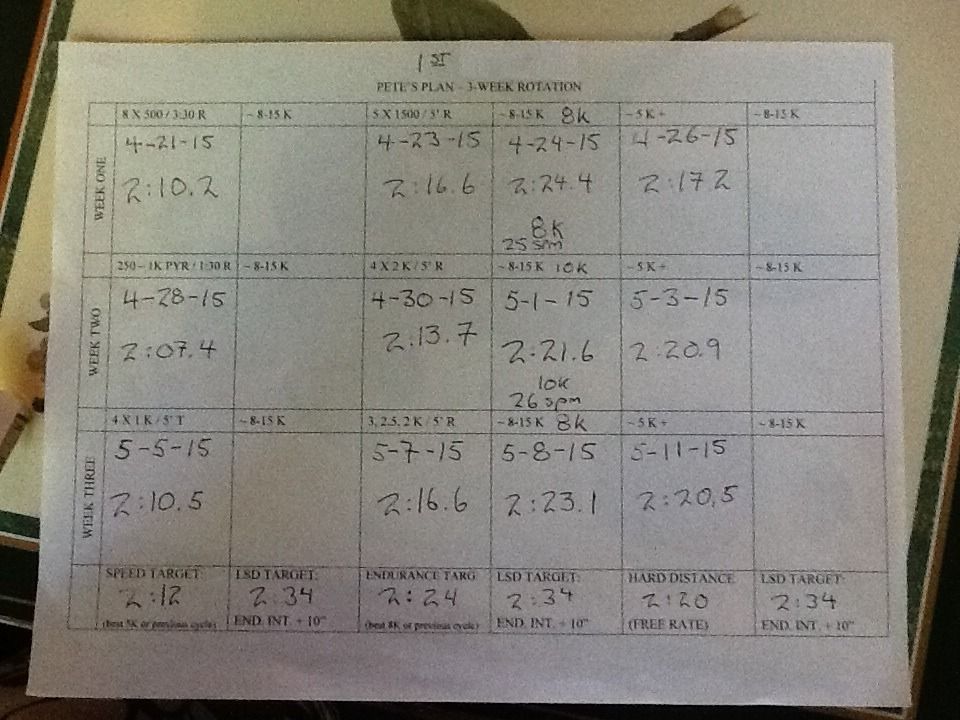 1ST
PETE'S PLAN - 3-WEEK ROTATION
8 X 500 / 3:30 R
~ 8-15 K
5 X 1500 / 5' R
~ 8-15 K 8K
~ 5K +
~ 8-15 K
WEEK ONE
4-21-15
4-23-15
4-24-15
4-26-15
2:10.2
2:16.6
2:24.4
2:17 2
8K
25 spm
250 - 1K PYR / 1:30 R
~ 8-15 K
4 X 2 K / 5' R
~ 8-15 K 10K
~ 5K +
~ 8-15 K
WEEK TWO
4-28-15
4-30-15
5-1-15
5-3-15
2:07.4
2:13.7
2:21.6
2:20.9
10K
26 spm
4 X 1 K / 5' T
~ 8-15 K
3, 2.5, 2 K / 5' R
~ 8-15 K 8K
~ 5K +
~ 8-15 K
WEEK THREE
5-5-15
5-7-15
5-8-15
5-11-15
2:10.5
2:16.6
2:23.1
2:20.5
SPEED TARGET:
LSD TARGET:
ENDURANCE TARG
LSD TARGET:
HARD DISTANCE
LSD TARGET:
2:12
2:34
2:24
2:34
2:20
2:34
(best 5K or previous cycle)
END. INT. + 10"
(best 8K or previous cycle)
END. INT. + 10"
(FREE RATE)
END. INT. + 10"